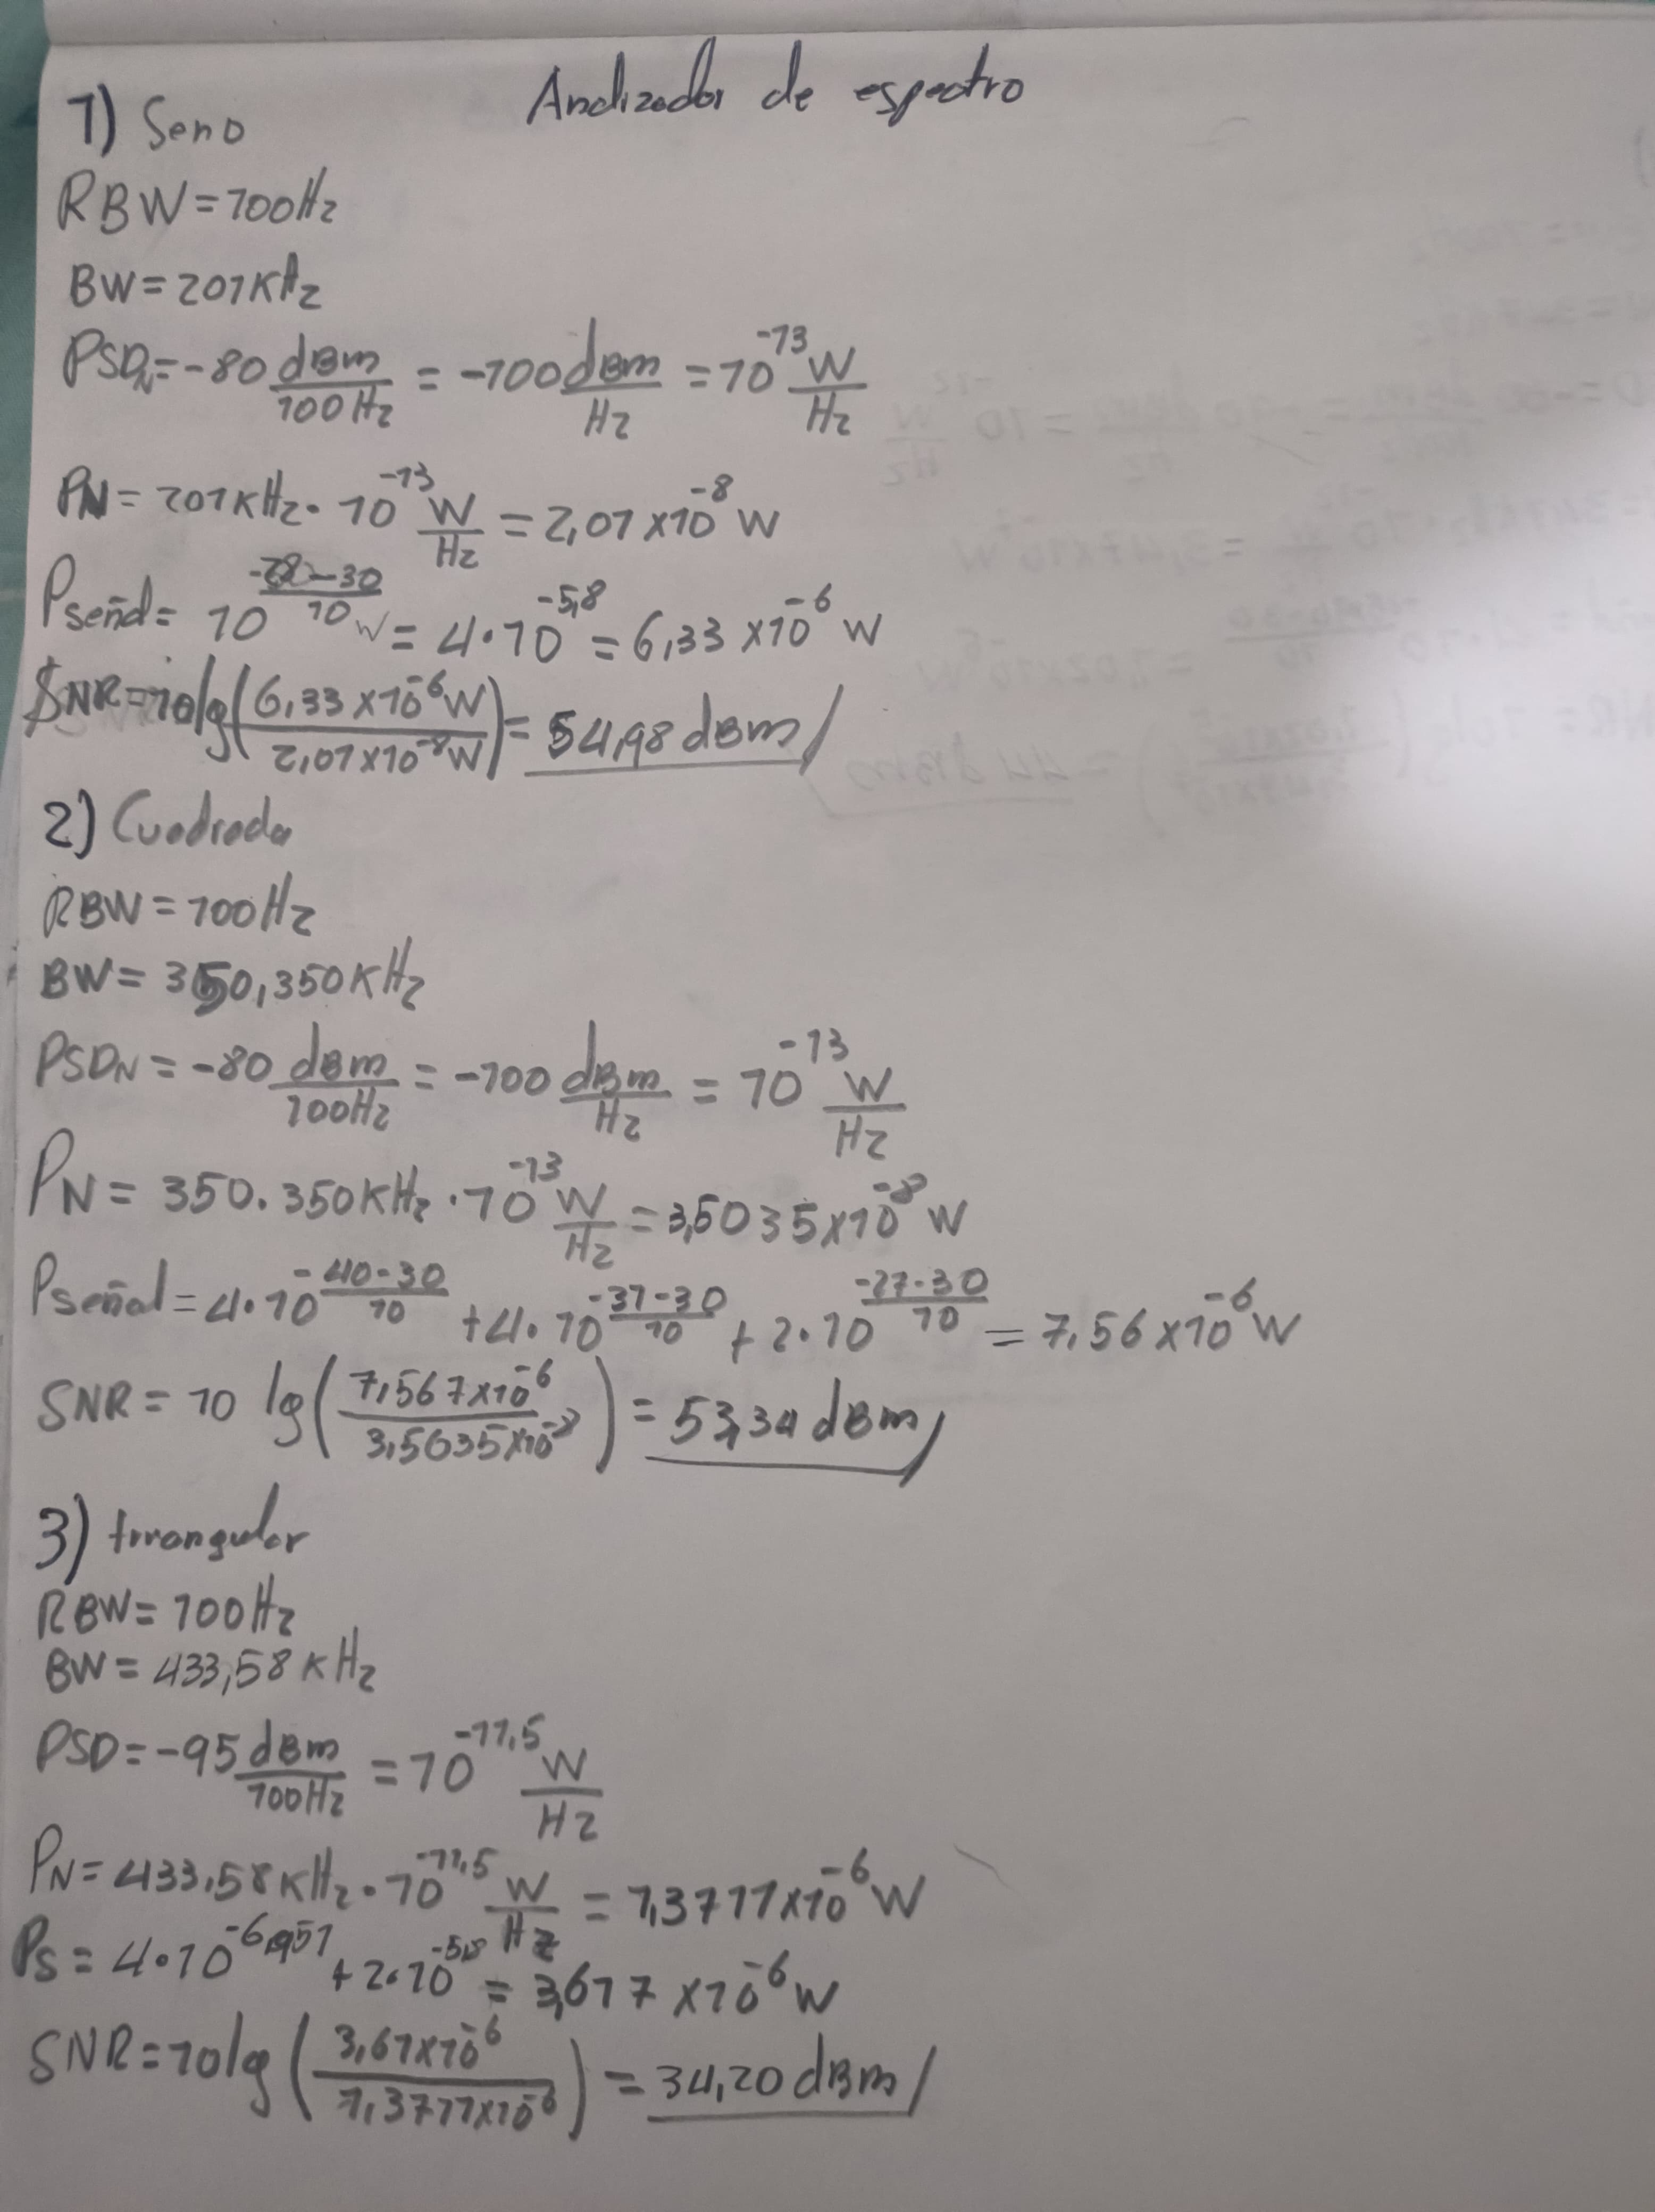 Analizador de espectro
1) Seno
RBW = 100Hz
BW = 201KHz
PSDN = -80 dBm/100Hz = -100 dBm/Hz = 10^-13 W/Hz
PN = 201KHz · 10^-13 W/Hz = 2,01 x10^-8 W
Pseñal = 10^(-28-30/10) W = 4·10^-5,8 = 6,33 x10^-6 W
SNR = 10lg(6,33 x10^-6 W / 2,01x10^-8 W) = 54,98 dBm
2) Cuadrada
RBW = 100Hz
BW = 350,350KHz
PSDN = -80 dBm/100Hz = -100 dBm/Hz = 10^-13 W/Hz
PN = 350.350KHz · 10^-13 W/Hz = 3,5035x10^-8 W
Pseñal = 4·10^(-40-30/10) + 4·10^(-37-30/10) + 2·10^(-27-30/10) = 7,56 x10^-6 W
SNR = 10 lg(7,567x10^-6 / 3,5035x10^-8) = 53,34 dBm
3) triangular
RBW = 100Hz
BW = 433,58 KHz
PSD = -95 dBm/100Hz = 10^-11,5 W/Hz
PN = 433,58KHz · 10^-11,5 W/Hz = 1,3711x10^-6 W
PS = 4·10^-6,951 + 2·10^-5,8 = 3,617 x10^-6 W
SNR = 10lg(3,61x10^-6 / 1,3711x10^-6) = 34,20 dBm